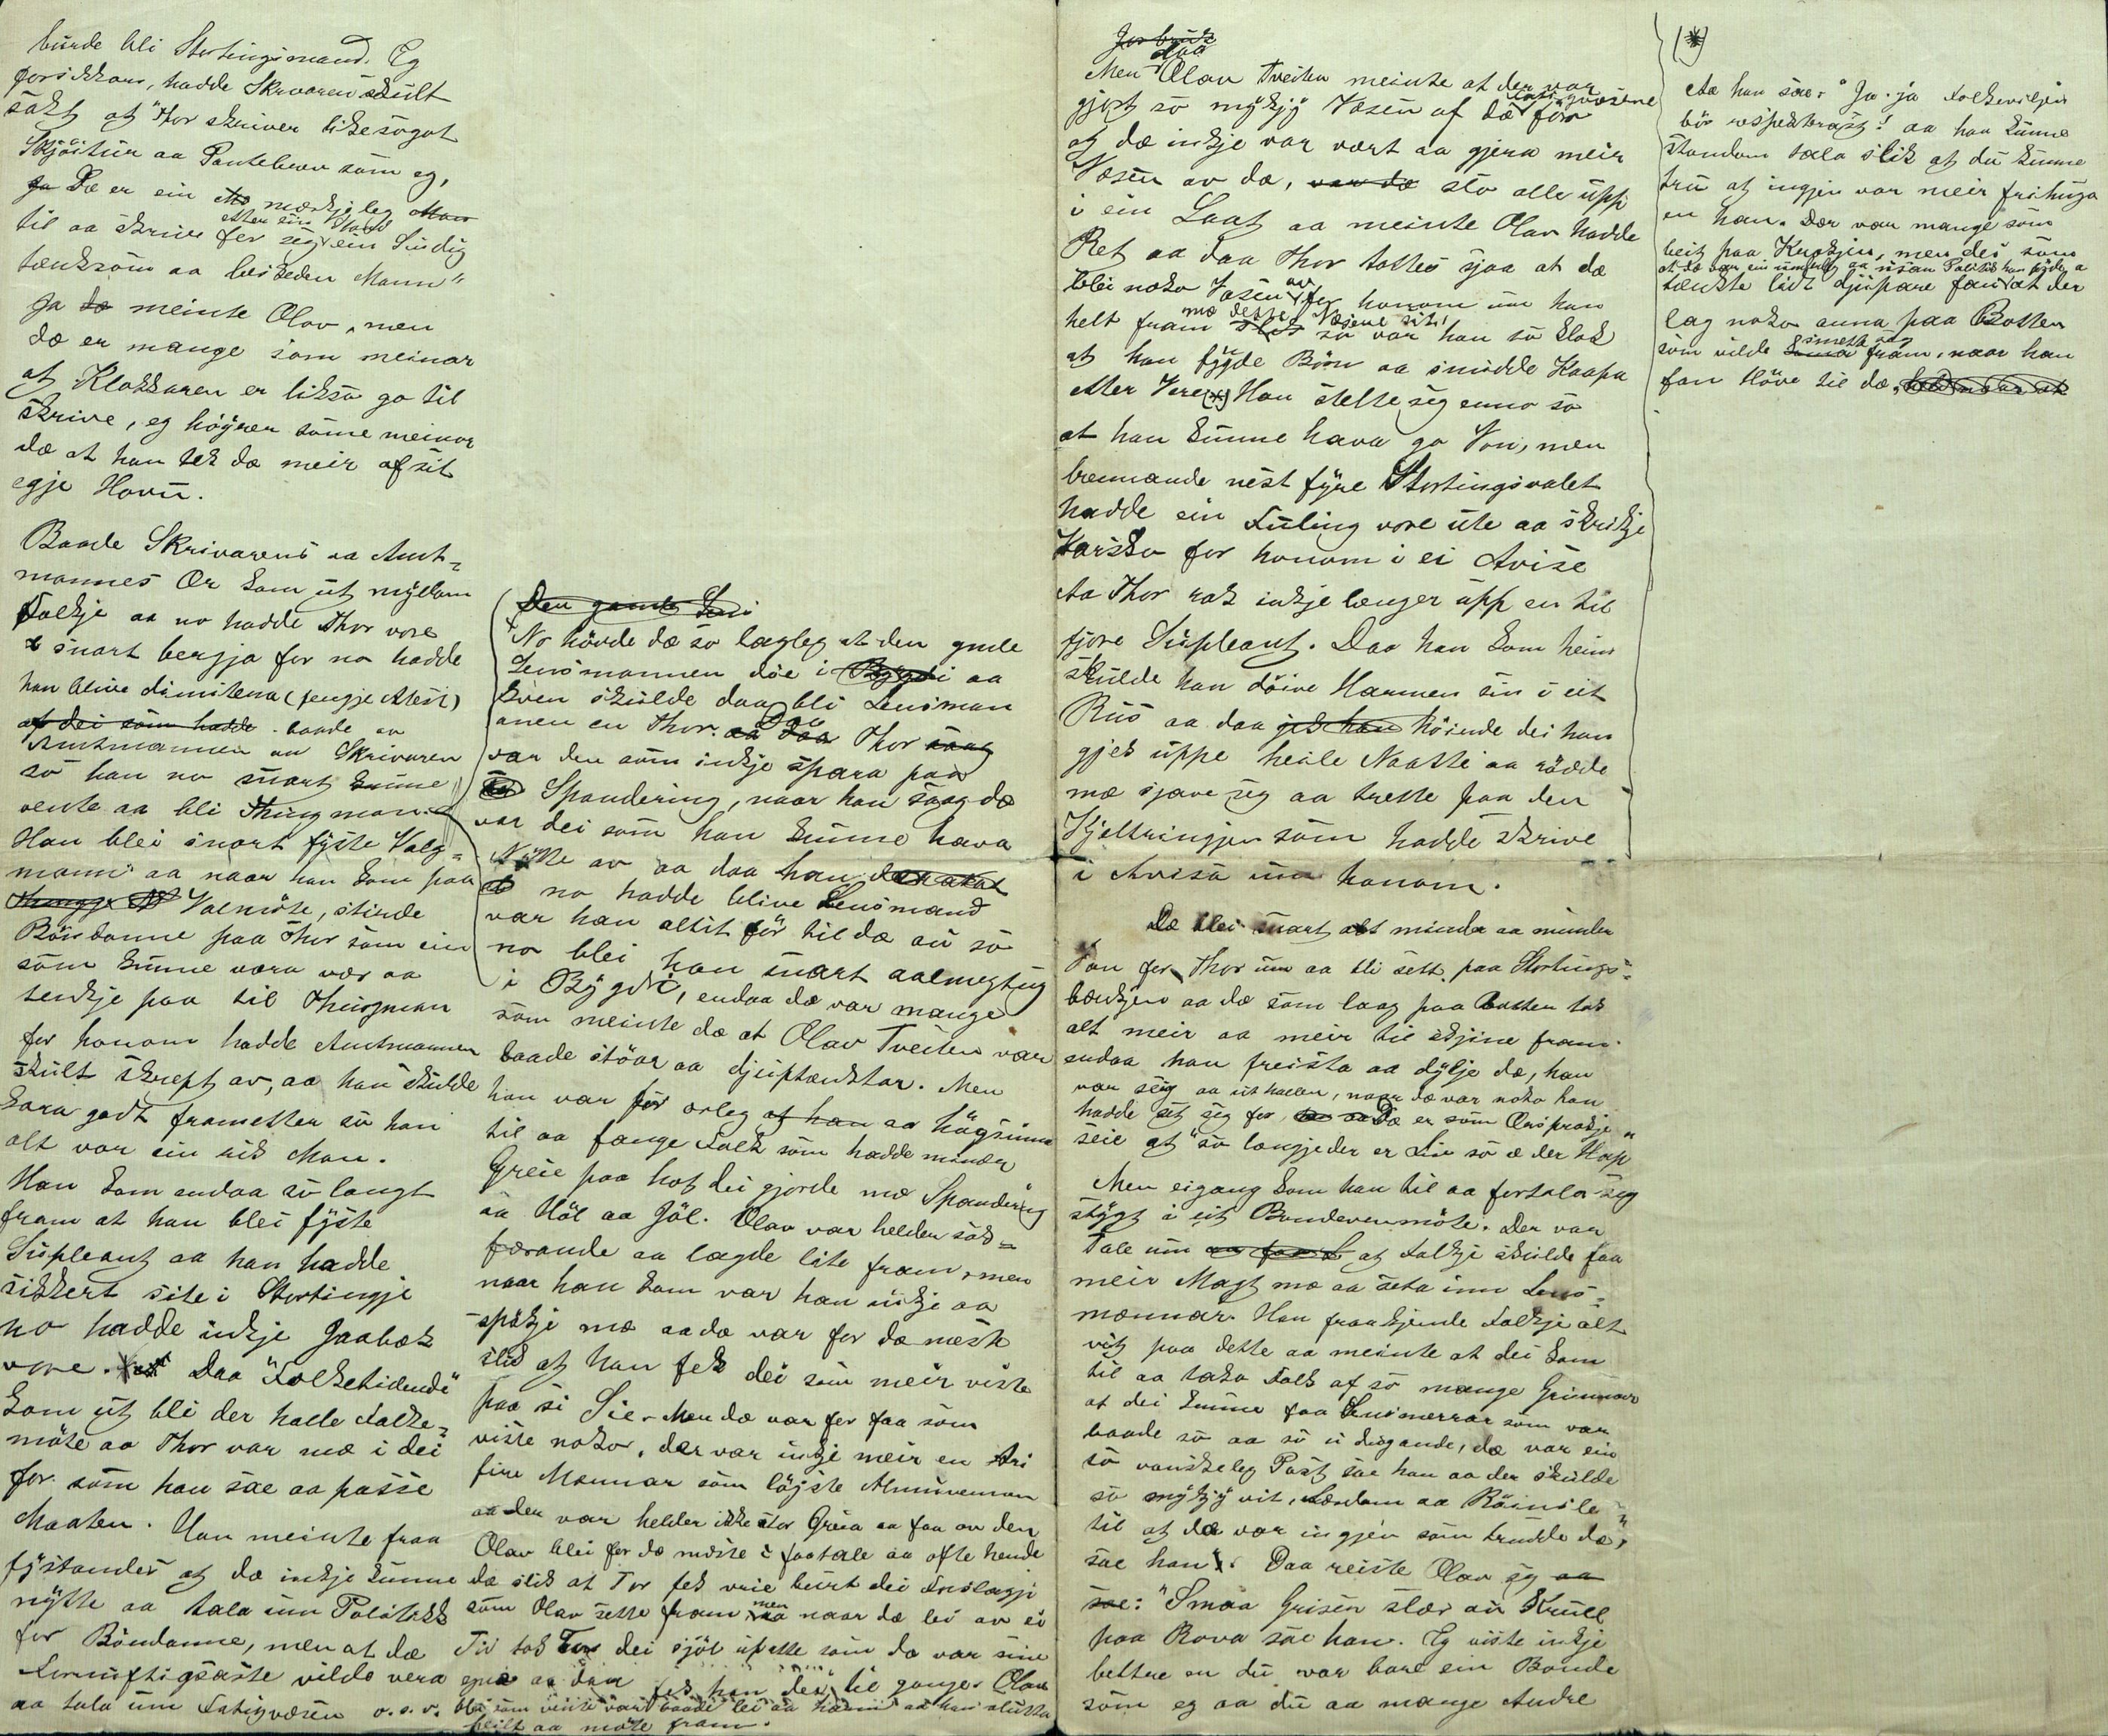 burde bli Stortingsmand. Eg
forsikkrar, hadde Skrivaren skult
sakt at "Thor skriver likesogot
Skjöitur aa Pantebrev som eg,
Dæ er ein mærkjeleg
til aa skrive fer seg etter sin Stand ein Sindig
tenksom aa beskeden Mann"
Ja meinte Olav, men
dæ er mange som meinar
at Klokkaren er likso go til
skrive, eg höyrer sume meinar
dæ at han tek dæ meir af sit
egje Hovu.
Baade Skrivarens aa Amt=
mannes Or kom ut myllom
Folkje aa no hadde Thor vore
snart bergja for no hadde
han blive dimitera (fengje Atest)
af dei som hadde. baade av
Amtmannen av Skrivaren
so han no snart kunne
vente aa bli Thingman.
Han blei snart fyste Valg=
mann aa naar han kom paa
Valmöte, stirde
Böndanne paa Thor som ein
som kunne vera vær aa
tenkje paa til Thingman
for honom hadde Amtmannen
skult skrept av, aa han skulde
kara godt frametter so han
alt var ein rik Man.
Han kom endaa so langt
fram at han blei fyste
Supleant aa han hadde
sikkert site i Stortingje
no hadde inkje Jaabæk
vore. Daa "Folketidende"
kom ut bli der halle Folke=
möte aa Thor var mæ i dei
for som han sae aa passe
Maaten. Han meinte fraa
fystandes at dæ inkje kunne
nytte aa tala um Politikk
for Böndanne, men at dæ
fornuftigsaste vilde vera
aa tala um Fatigvæsen o.s.v.
Den gamle Lens
No hövde dæ so lagleg at den gamle
Lensmannen döe i Bygdi aa
kven skulde daa bli Lensman
anen en Thor. Daa Thor
var den som inkje spara paa
Spandering, naar han saag dæ
var dei som han kunne hava
Nytte av aa daa han
no hadde blive Lensmand
var han altit för til dæ au so
no blei han snart aalmegtug
i Bygdi, endaa dæ var mange
som meinte dæ at Olav Tveiten var
baade stöar aa djuptenktar. Men
han var for ærleg aa högsinna
til aa fange Folk som hadde mindar
Greie paa hot dei gjorde mæ Spandering
aa Höl aa Jöl. Olav var helder sak=
færande aa lagde lite fram, men
naar han kom var han inkje aa
spökje mæ aa dæ var for dæ mæste
slik at han fek dei som meir viste
paa si Sie. Men dæ var for faa som
viste noko, der var inkje meir en tri
fire Mannar som löjste Almuneman
aa der var helder ikke stor Greia aa faa av den
Olav blei for dæ mæste i faatale aa ofte hende
dæ slik at Tor fek vrie burt dei Forslagji
som Olav sette fram men naar dæ lei av ei
Tid tok Tor dei sjöl upatte som dæ var sine
egne aa daa fek han dei til gange. Olav
blei som viste var baade lei aa harm aa han slutta
heilt aa möte fram.
Jor bruk
Men daa Olav Tveiten meinte at der var
gjort so mykjy Væsen af dæ Fatigvæsene for
at dæ inkje var vært aa gjera meir
Væsen av dæ, var dæ sto alle uppi
i ein Laat aa meinte Olav hadde
Ret aa daa Thor tottes sjaa at dæ
blei noko Væsen av for honom um han
helt fram mæ dette Væsene sit so var han so klok
at han fygde Bön aa snudde Kaapa
etter Vere (*) Han stelte seg enno so
at han kunne hava go Von, men
brennande nest fyre Stortingsvalet
hadde ein Fuling vore ute aa skrikje
Varsko for honom i ei Avise
Aa Thor rak inkje lenger upp en til
fjore Supleant. Daa han kom heim
skulde han döive Harmen sin i eit
Rus aa daa höirde dei han
gjek uppe heile Naatti aa rödde
mæ sjave seg aa trette paa den
Kjeltringjen som hadde skrive
i Avisa um honom.
Dæ blei snart alt mindar aa mindar
Von for Thor um aa bli sett paa Stortings=
bænkjen aa dæ som laag paa Botten tok
alt meir aa meir til skjine fram
endaa han freista aa dylje dæ, han
var seig aa uthallen, naar dæ var noko han
hadde set seg for, Dæ er som Orsprakje
seie at "so længje der er Liv so æ der Haap"
Men eigang kom han til aa fortala seg
stygt i eit Bondevenmöte. Der var
Tale um at Folkje skulde faa
meir Magt mæ aa seta inn Lens=
mænnar. Han fraakjende Folkje alt
vit paa dette aa meinte at dei kom
til aa taka Folk af so mange Grunnar
at dei kunne faa Lensmennar som var
baade so aa so udugande, dæ var ein
so vanskeleg Post sae han aa der skulde
so mykjy vit, Lærdom aa Röinsle
til at dæ var ingjen som trudde dæ,
sae han. Daa reiste Olav seg aa
sae: "Smaa Grisen slær au Krull
paa Rova sae han. Eg viste inkje
bettre en du var bare ein Bonde
som eg aa du aa mange Andre
(*)
Aa han sae: "Ja-ja Folkeviljen
bör respekterast! aa han kunne
stundom tala slik at du kunne
tru at ingjen var meir frihuga
en han. Der var mange som
beit paa Krokjen, men dei som
tenkte lidt djupare fan at dæ var ein umful aa usan Politik han fyde a at der
lag noko anna paa Botten
som vilde smetta fram, naar han
fan Höve til dæ,